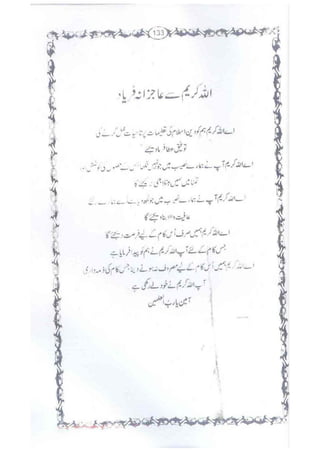 133
اللہ کریم سے عاجزانہ فریاد:
اے اللہ کریم ہم کو دین اسلام کی تعلیمات پر تاحیات عمل کرنے کی
توفیق عطا فرما دیجئے
اے اللہ کریم آپ نے ہمارے نصیب میں جو نہیں لکھا اس کے حصول کی کوشش اور
تمنا میں ہمیں نہ
اے اللہ کریم آپ نے ہمارے نصیب میں جو لکھ دیا ہے اسے ہمارے لئے
عافیت والا بنا دیجئے گا
اے اللہ کریم ہمیں صرف اُس کام کے لیے فرصت دیجئے گا
جس کام کے لئے آپ اللہ کریم نے ہم کو پیدا فرمایا ہے
اے اللہ کریم ہمیں اُس کام کے لیے مصروف نہ ہونے دینا جس کام کی ذمہ داری
آپ اللہ کریم نے خود لے رکھی ہے
آمین یا رب العٰلمین